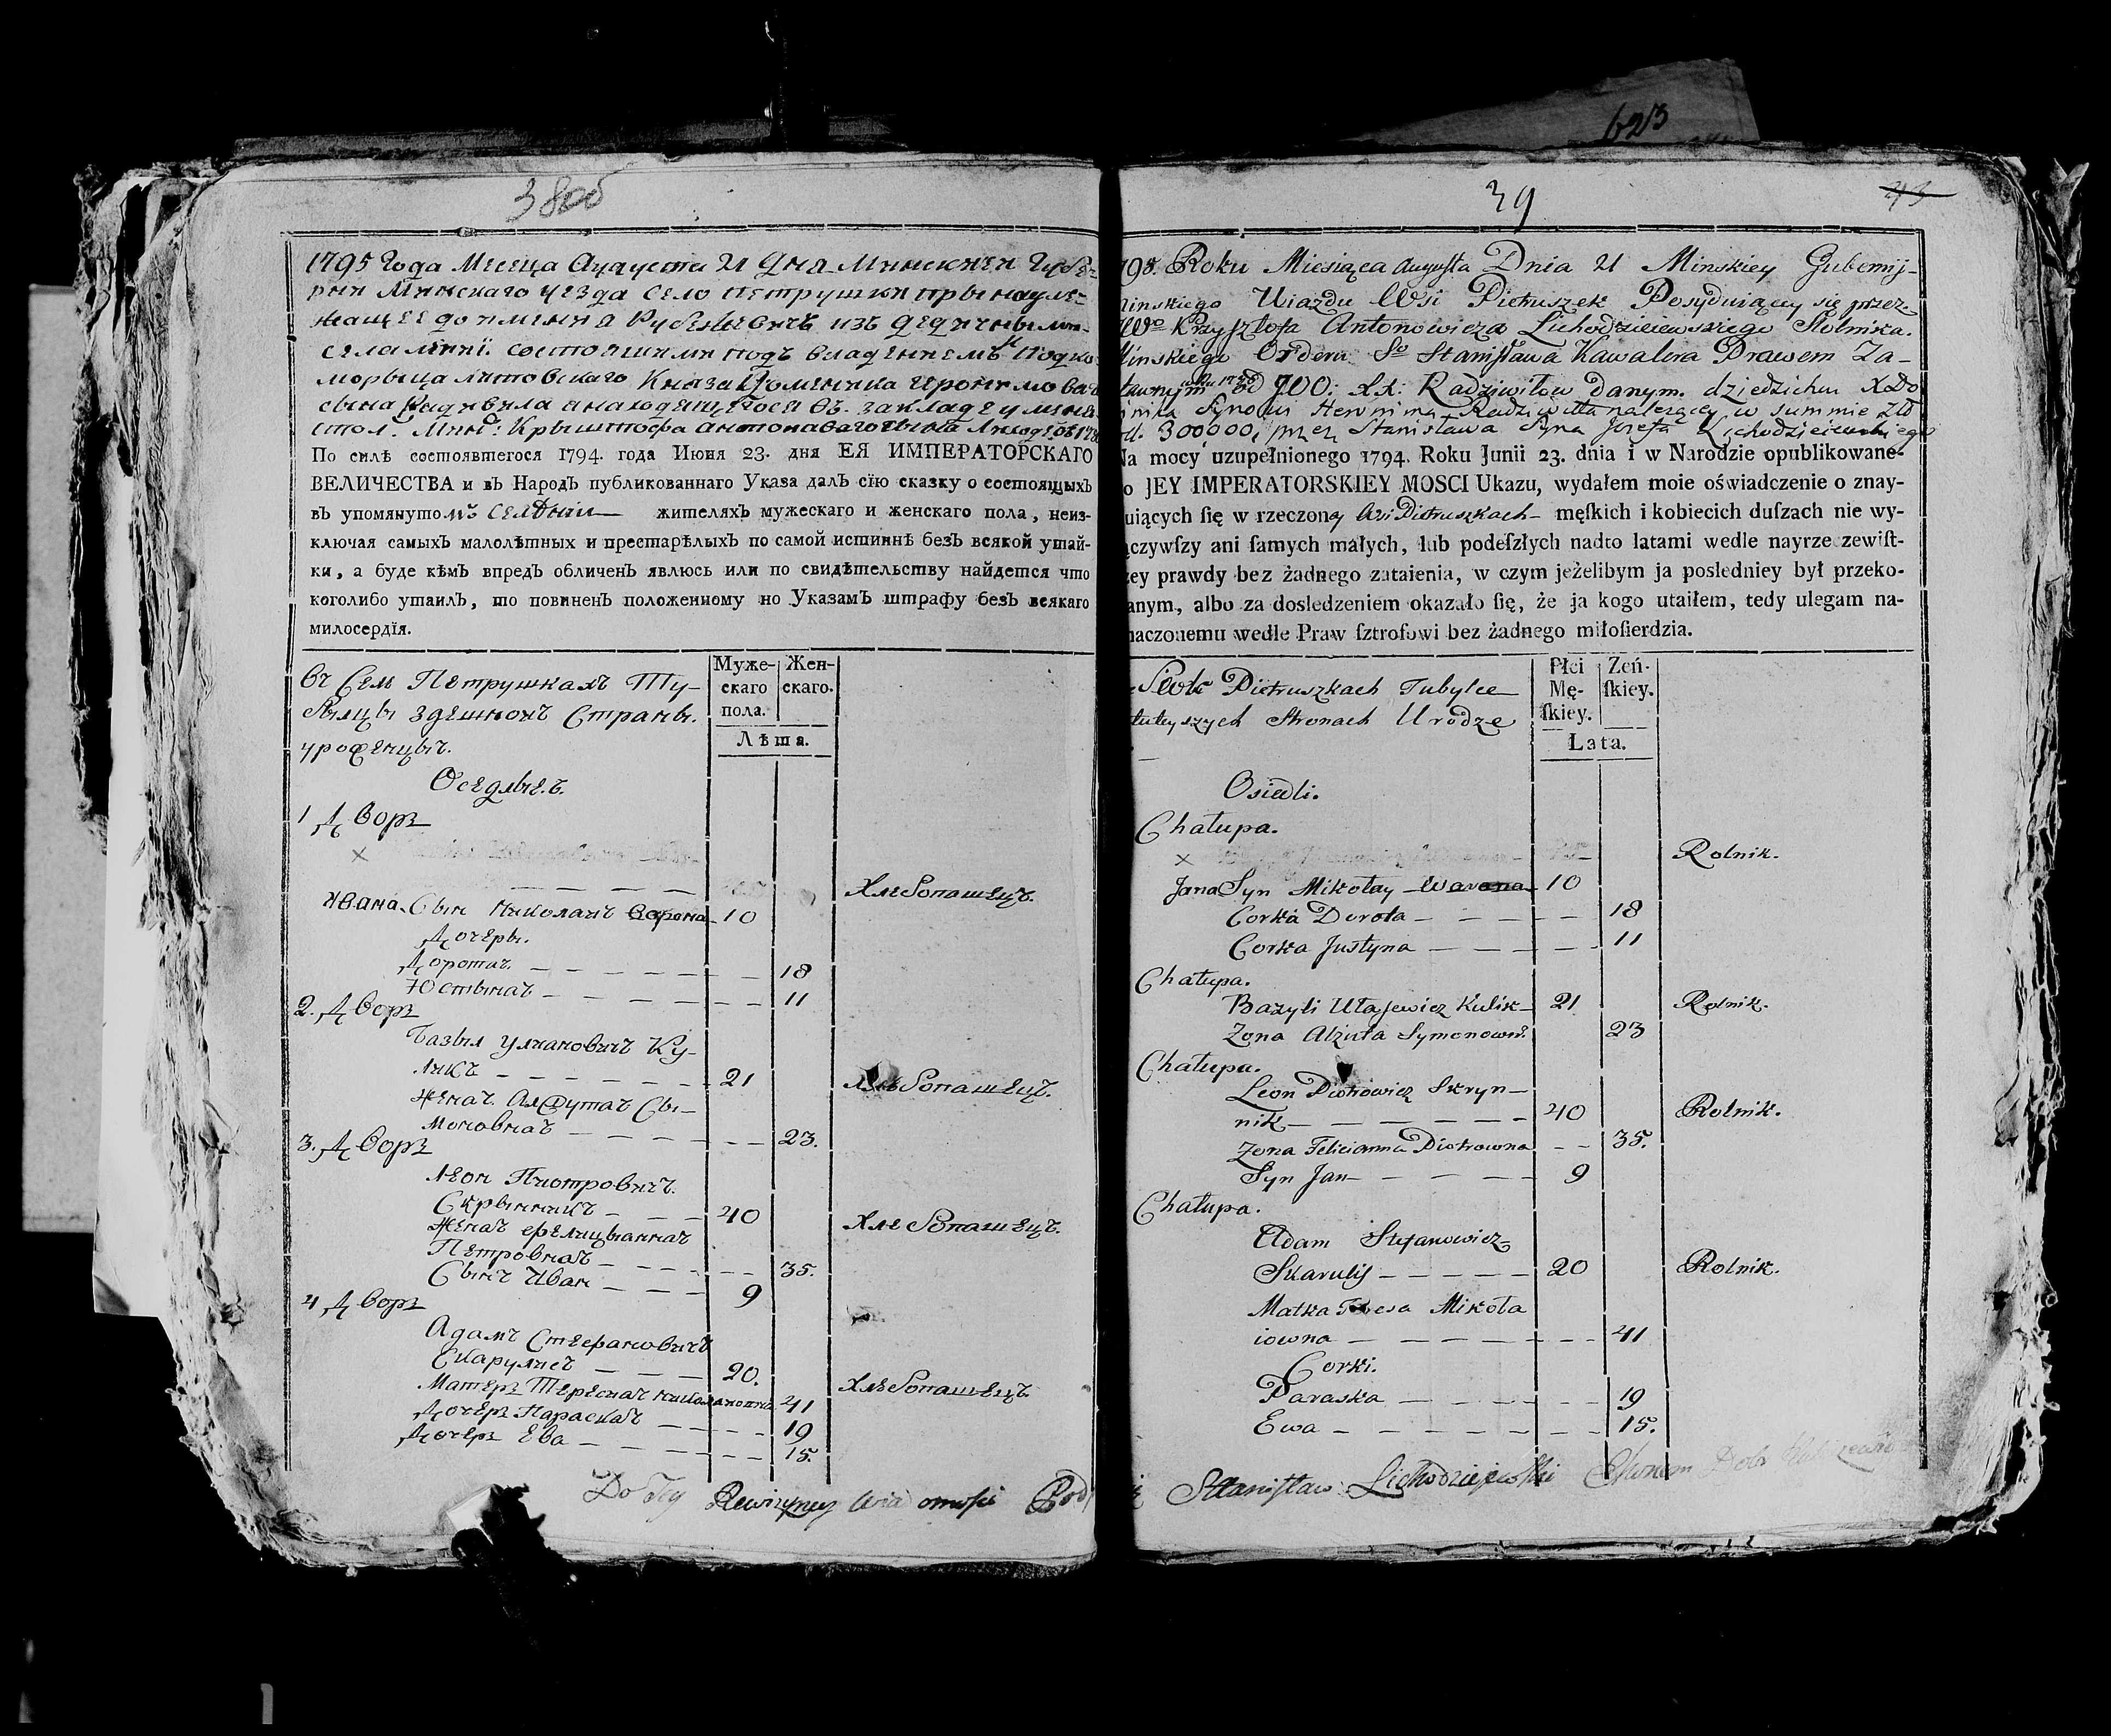 623
38об
1795 Года Месеца Аугуста 21 Дня Минскией Губе-
рнии Минскаго уезда село Петрушки принадле-
жащее до имения Рубежевичъ изъ дедичными
села состоящими подъ владениемъ Подко
морыца литовскаго Князя Доминика Иеронимова
сына Радивила а находящегося въ закладе у
стол. Мин: Крыштофа Антонаваго сына
По силѣ состоявшегося 1794. года Июня 23. дня ЕЯ ИМПЕРАТОРСКАГО
ВЕЛИЧЕСТВА и въ Народъ публикованнаго Указа далъ сїю сказку о состоящыхъ
въ упомянутомъ селѣнии жителяхъ мужескаго и женскаго пола, неиз-
ключая самыхъ малолѣтныхъ и престарѣлыхъ по самой истиннѣ безъ всякой утай-
ки, а буде кѣмъ впредъ обличенъ явлюсь или по свидѣтельству найдется что
коголибо утаилъ, то повиненъ положенному по Указамъ штрафу безъ всякаго
милосердїя.
Муже-
скаго
пола.
Жен-
скаго.
Лѣта.
въ Селе Петрушкахъ Ту-
былцы здешнои Страны.
уроженцы.
Оседлые.
1 Дворъ
×
Хлебопашецъ.
Ивана Сын Николаи Варона 10
Дочеры.
Дорота 18
Юстына 11
2. Дворъ
Базыл Улианович Ку-
лик 21 Хлебопашецъ.
Жена Алжута Сы-
моновна 23.
3. Дворъ
Леон Пиотрович.
Скрынник 40 Хлебопашецъ.
Жена Фелициянна
Петровна 35.
Сын Иван 9
4 Дворъ
Адам Стефанович
Скарулис 20. Хлебопашецъ
Матеръ Тереса Николаионна 41
Дочеръ Параска 19
Дочеръ Ева 15.
Do Tey Rewizyney Wiadomości Pod
39
43
795. Roku Miesiąca Augusta Dnia 21 Minskiey Gubernij-
inskiego Uiazdu Wsi Pietruszek Posyduiącey się przez
Krzysztofa Antonowicza Lichodzieiewskiego Stolnika.
inskiego Orderu So Stanisława Kawalera Prawem Za-
tawnym od JOO: XX: Radziwiłow danym. dziedzictwu X Do
inika Synowi Heronima Radziwiłła należącey w summie zło
300000, przez Stanisława Syna Jozefa Lichodzieiewskiego
Na mocy uzupełnionego 1794. Roku Junii 23. dnia i w Narodzie opublikowane-
o JEY IMPERATORSKIEY MOSCI Ukazu, wydałem moie oświadczenie o znay-
uiących ſię w rzeczoney Wsi Pietruszkach męſkich i kobiecich duſzach nie wy-
ączywſzy ani ſamych małych, lub podeſzłych nadto latami wedle nayrzeczewiſt-
zey prawdy bez żadnego zataienia, w czym jeżelibym ja posledniey był przeko-
anym, albo za dosledzeniem okazało ſię, że ja kogo utaiłem, tedy ulegam na-
naczonemu wedle Praw ſztrofowi bez żadnego miłoſierdzia.
Płci
Mę-
ſkiey.
Zeń-
ſkiey.
Lata.
Siole Pietruszkach Tubylce
tuteyszych Stronach Urodze
Osiedli.
Chałupa.
× Rolnik.
Jana Syn Mikołay Warona 10
Corka Dorota 18
Corka Justyna 11
Chałupa.
Bazyli Ułajewicz Kulik 21 Rolnik.
Zona Alżuta Symonown. 23
Chałupa.
Leon Piotrowicz Skryn-
nik 40 Rolnik.
Zona Felicianna Piotrowna 35.
Syn Jan 9
Chałupa.
Adam Stefanowicz
Skarulis 20 Rolnik.
Matka Teresa Mikoła
iowna 41
Corki.
Paraska 19
Ewa 15.
Stanisław Lichodziejewski